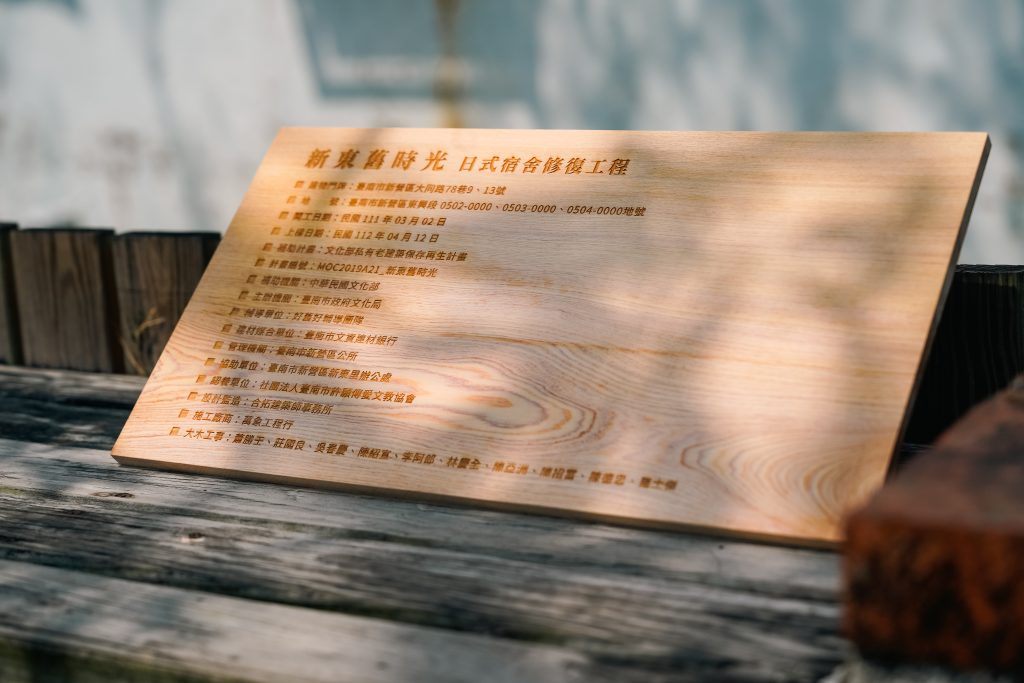 新東舊時光 日式宿舍修復工程
建物門牌：臺南市新營區大同路78巷9、13號
地 號：臺南市新營區東興段 0502-0000、0503-0000、0504-0000地號
開工日期：民國 111 年 03 月 02 日
上樑日期：民國 112 年 04 月 12 日
補助計畫：文化部私有老建築保存再生計畫
計畫編號：MOC2019A21_新東舊時光
補助機關：中華民國文化部
主辦機關：臺南市政府文化局
輔導單位：好舊好輔導團隊
建材媒合單位：臺南市文資建材銀行
管理機關：臺南市新營區公所
協助單位：臺南市新營區新東里辦公處
經營單位：社團法人臺南市許願傳愛文教協會
設計監造：合祐建築師事務所
施工廠商：萬象工程行
大木工事：莊國良、吳香慶、陳紹宜、李阿郎、